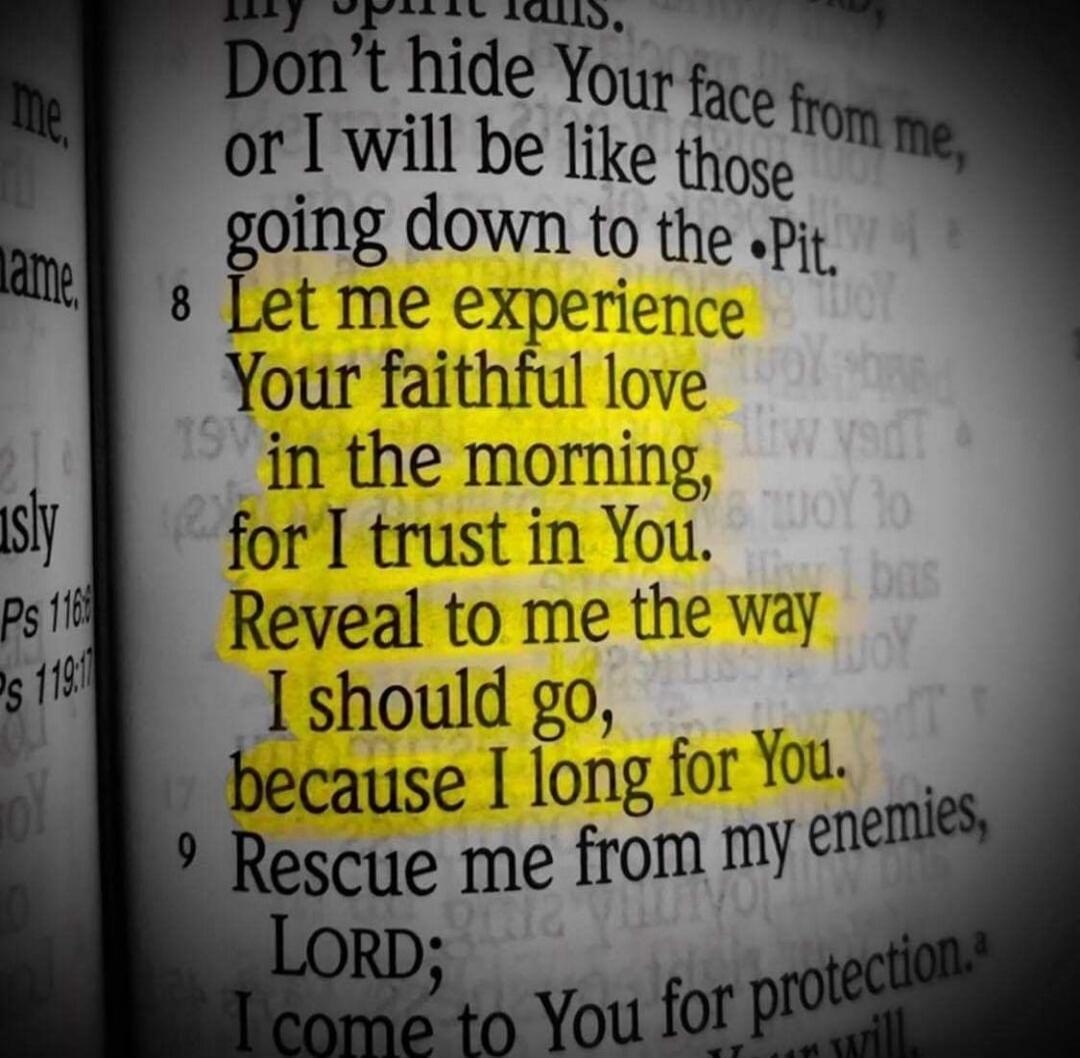 me.
name.
usly
Ps 116:8
Ps 119:17
my spirit fails.
Don't hide Your face from me,
or I will be like those
going down to the •Pit.
8 Let me experience
Your faithful love
in the morning,
for I trust in You.
Reveal to me the way
I should go,
because I long for You.
9 Rescue me from my enemies,
LORD;
I come to You for protection.a
will